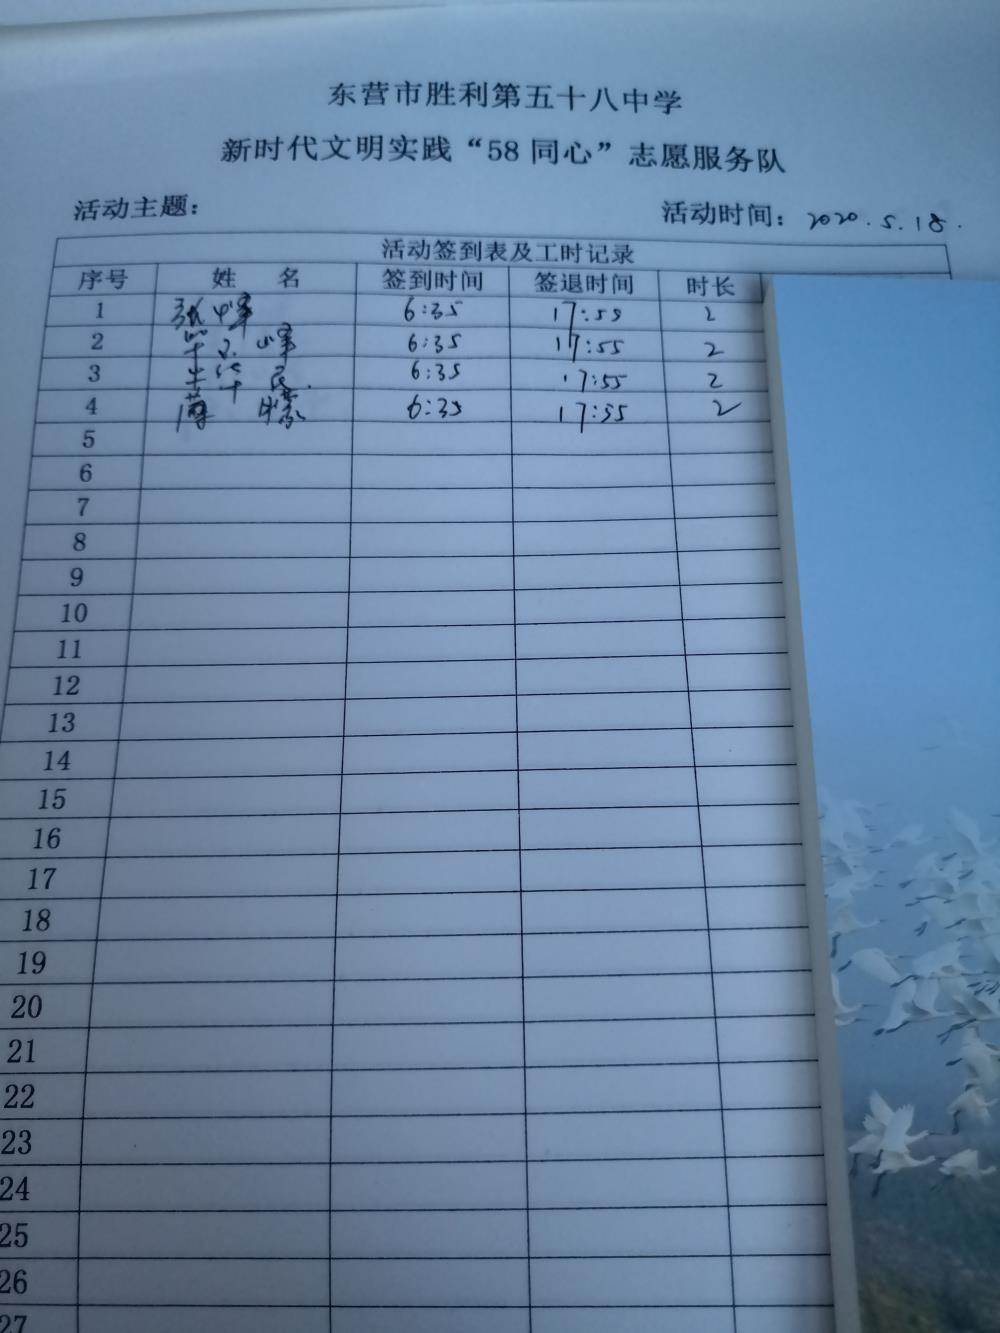 东营市胜利第五十八中学
新时代文明实践“58 同心”志愿服务队
活动主题： 活动时间：2020.5.18.
活动签到表及工时记录
序号 姓 名 签到时间 签退时间 时长
1 张 6:35 17:55 2
2 峰 6:35 17:55 2
3 民 6:35 17:55 2
4 薄 6:35 17:55 2
5
6
7
8
9
10
11
12
13
14
15
16
17
18
19
20
21
22
23
24
25
26
27